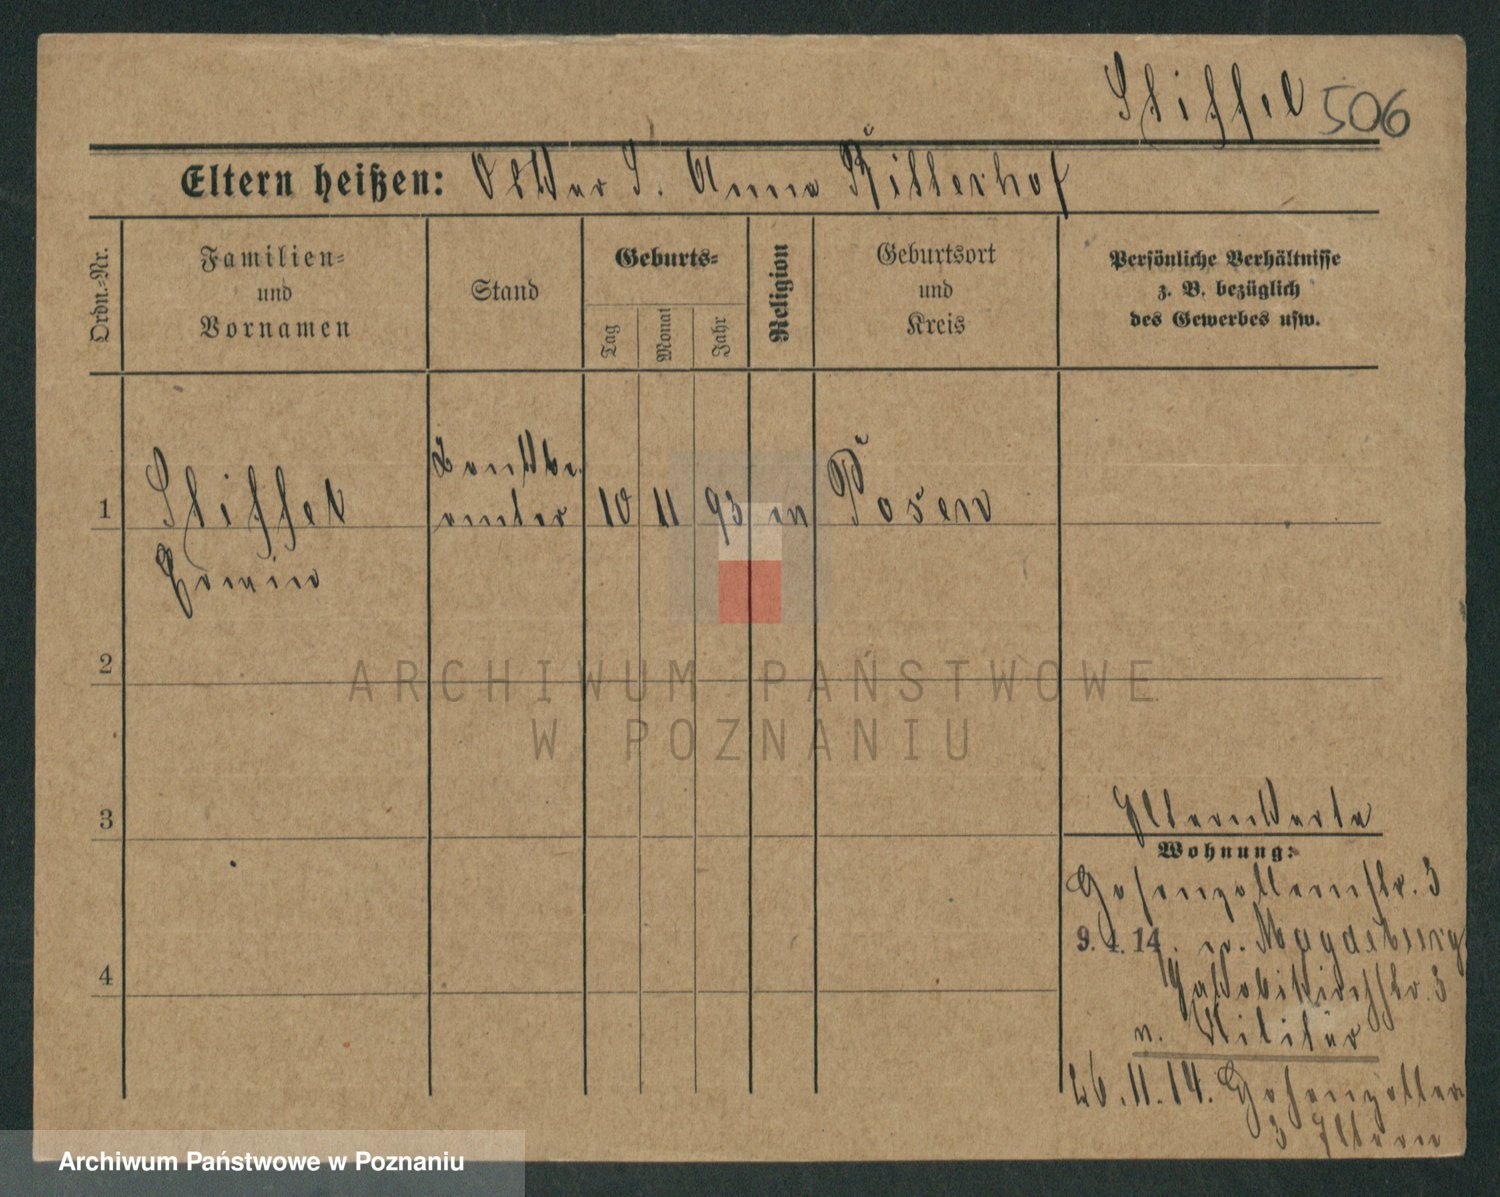 Stiffel 506
Eltern heißen: Oskar S. Anna Rillerhof
Ordn.-Nr.
Familien-
und
Vornamen
Stand
Geburts-
Tag
Monat
Jahr
Religion
Geburtsort
und
Kreis
Persönliche Verhältnisse
z. B. bezüglich
des Gewerbes usw.
1
Stiffel
Erwin
Bankbe-
amter
10 11 93
Posen
2
ARCHIWUM PAŃSTWOWE
W POZNANIU
3
Elternkarte
Wohnung:
Hohenzollernstr. 3
9. 4. 14. n. Magdeburg
Jakobikirchstr. 3
4
v. Militär
26. 11. 14. Hohenzollern
3 Eltern
Archiwum Państwowe w Poznaniu